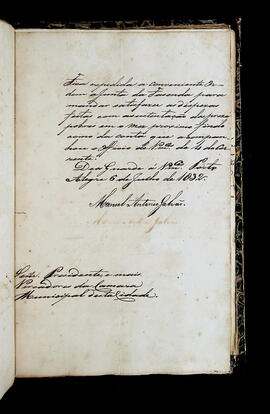 Fica expedida a conveniente Or-
dem a Junta da Fazenda para
mandar satisfazer as despezas
feitas com a sustentação dos prezos
pobres em o mez proximo findo
como da conta que acompa-
nhou o Officio de V.mces de 4 do Cor-
rente.
Deos Guarde á V.mces Porto
Alegre 6 de Julho de 1832
Manoel Antonio Galvão
Senrs. Presidente, e mais
Vereadores da Camara
Municipal desta Cidade.